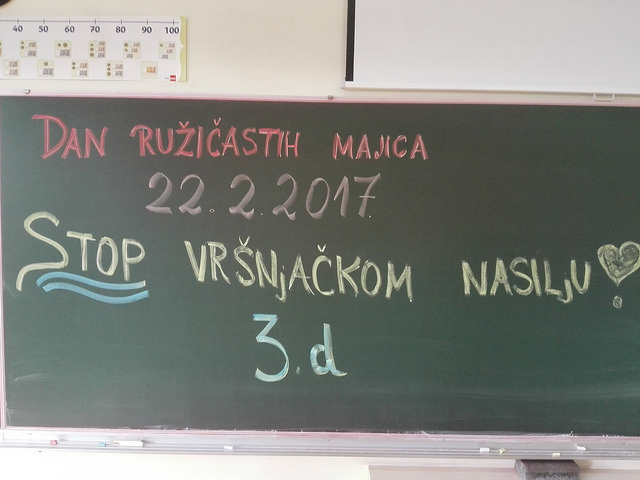 40 50 60 70 80 90 100
DAN RUŽIČASTIH MAJICA
22.2.2017.
STOP VRŠNJAČKOM NASILJU!
3.d